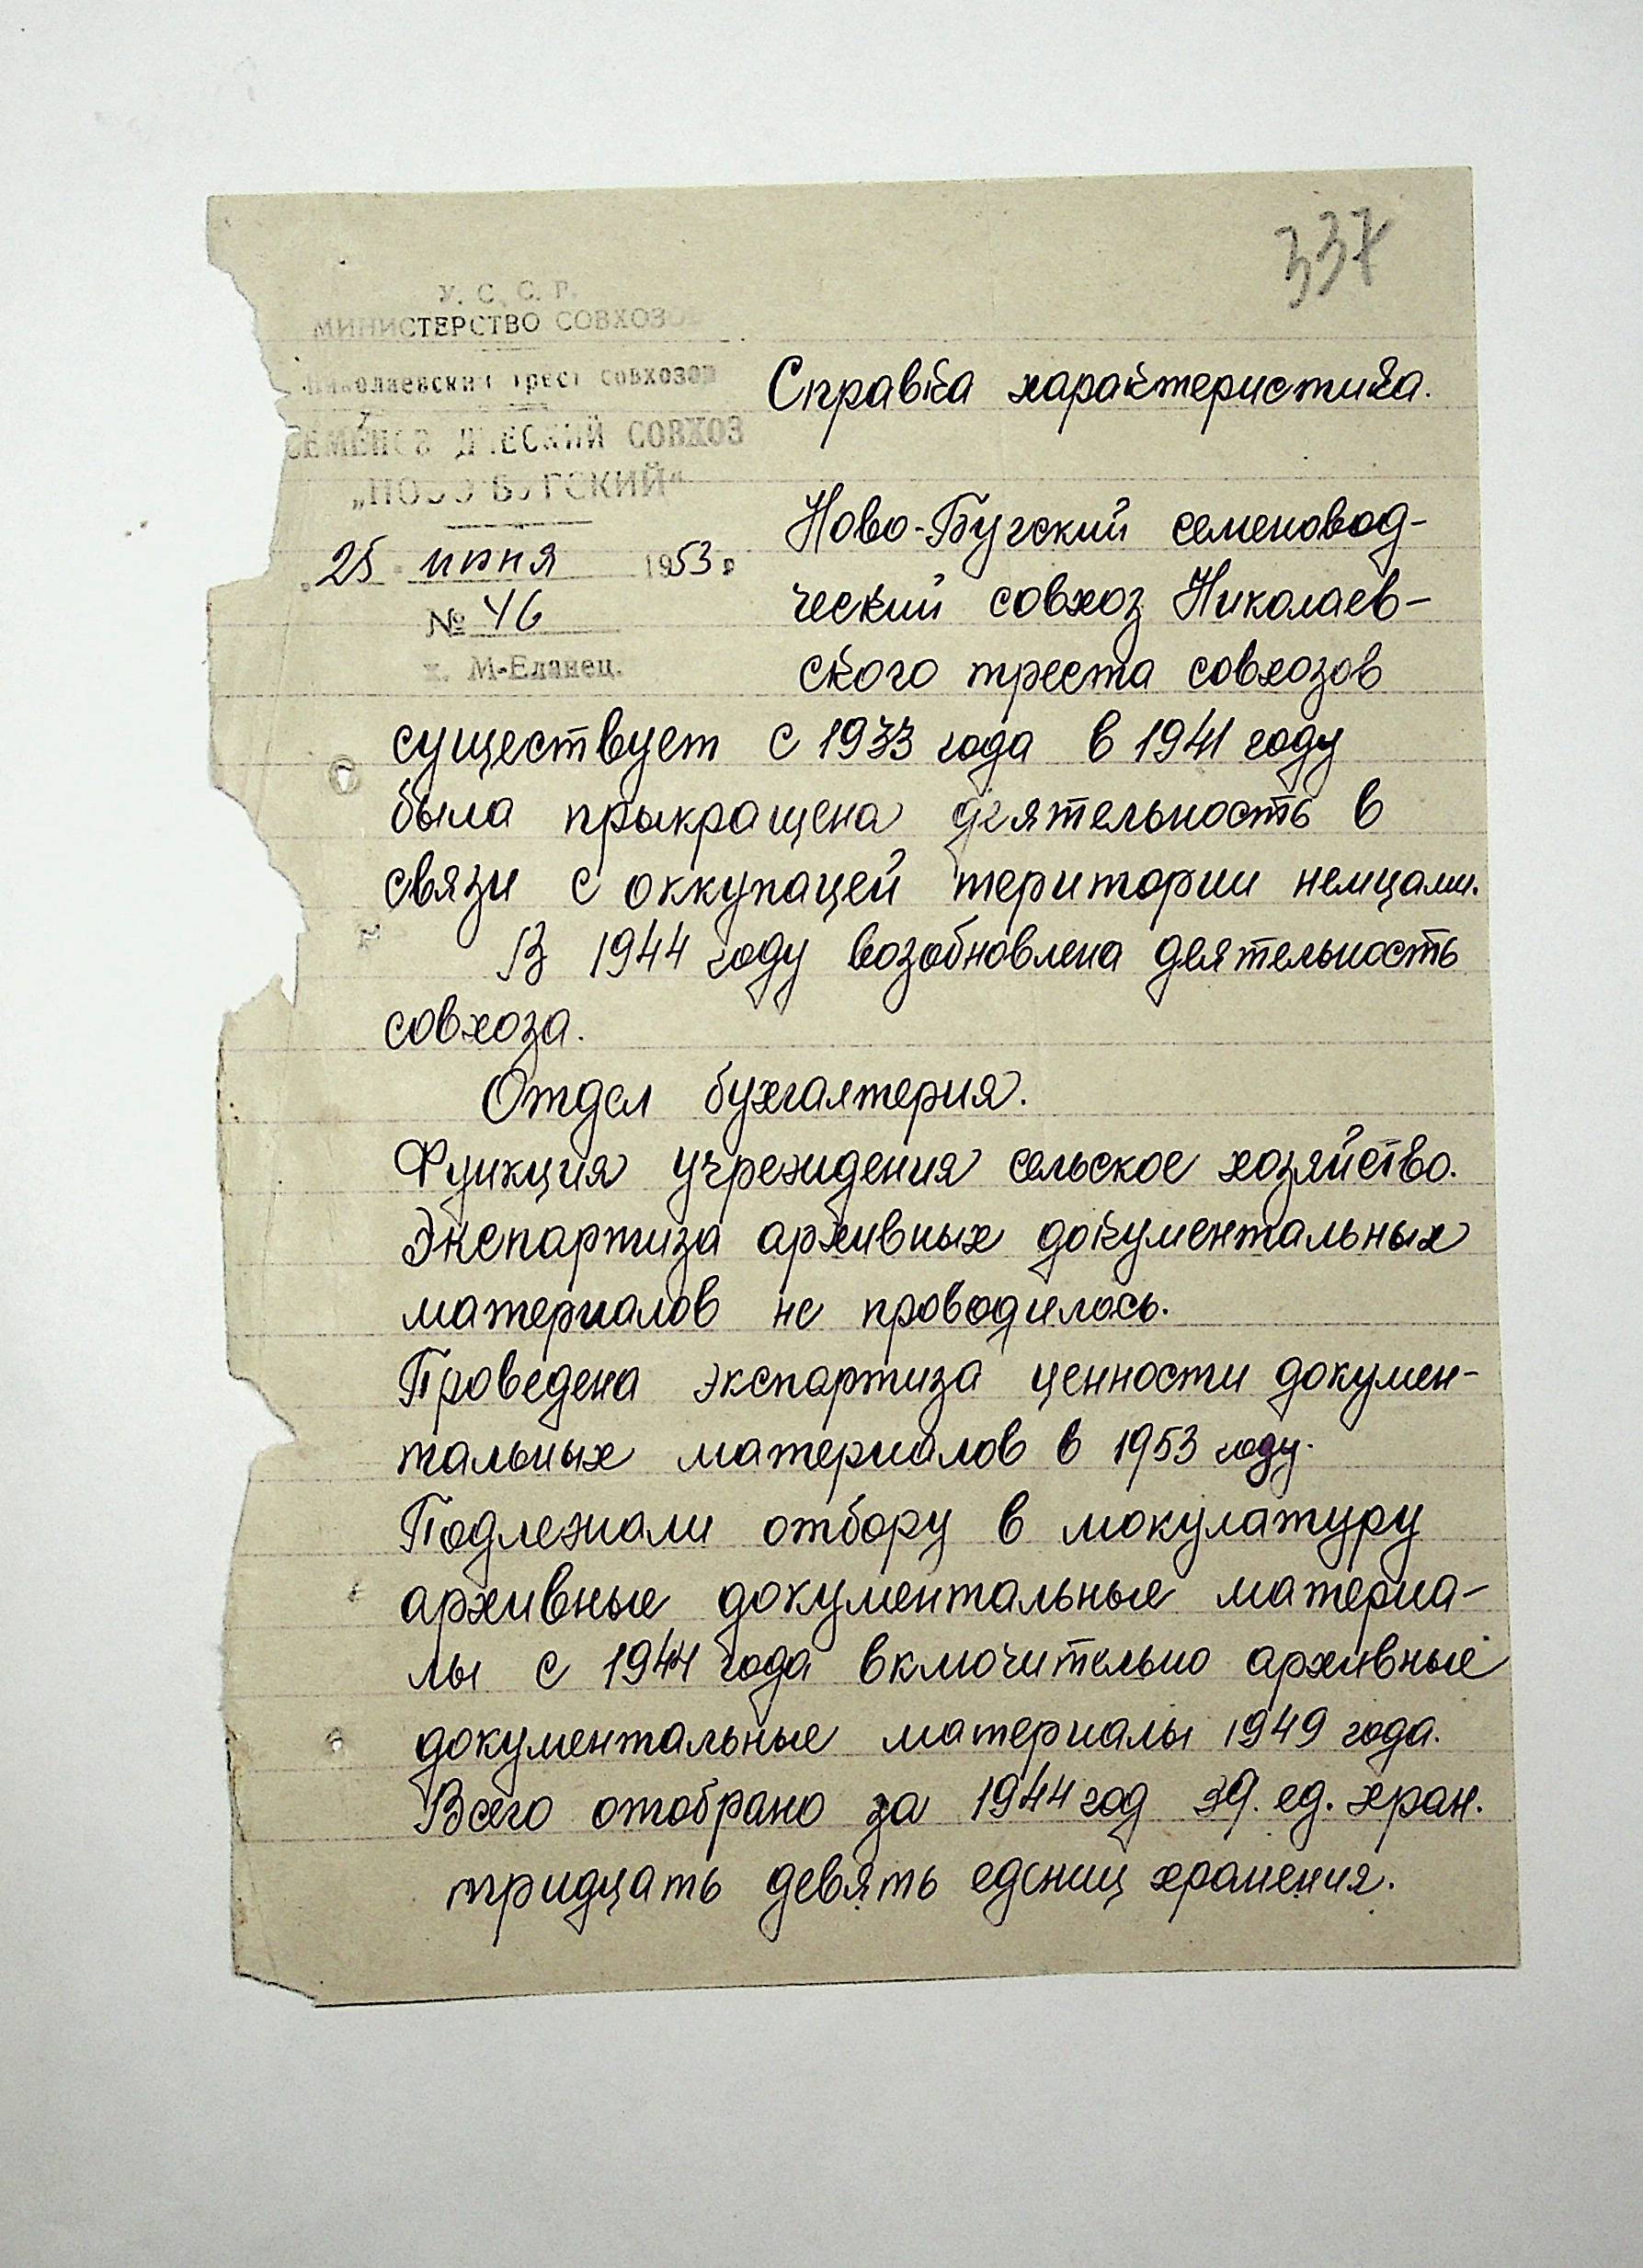 337
У. С. С. Р.
МИНИСТЕРСТВО СОВХОЗОВ
Николаевский трест совхозов
СЕМЕНОВОДЧЕСКИЙ СОВХОЗ
„НОВО-БУГСКИЙ“
„25 " июня 1953 г.
№ 46
х. М-Еланец.
Справка характеристика.
Ново-Бугский семеновод-
ческий совхоз Николаев-
ского треста совхозов
существует с 1933 года в 1941 году
была прыкращена деятельность в
связи с оккупацей територии немцами.
В 1944 году возобновлена деятельность
совхоза.
Отдел бухгалтерия.
Функция учреждения сельское хозяйство.
Экспартиза архивных документальных
материалов не проводилось.
Проведена экспартиза ценности докумен-
тальных материалов в 1953 году.
Подлежали отбору в мокулатуру
архивные документальные материа-
лы с 1944 года включительно архивные
документальные материалы 1949 года.
Всего отобрано за 1944 год 39. ед. хран.
тридцать девять едениц хранения.